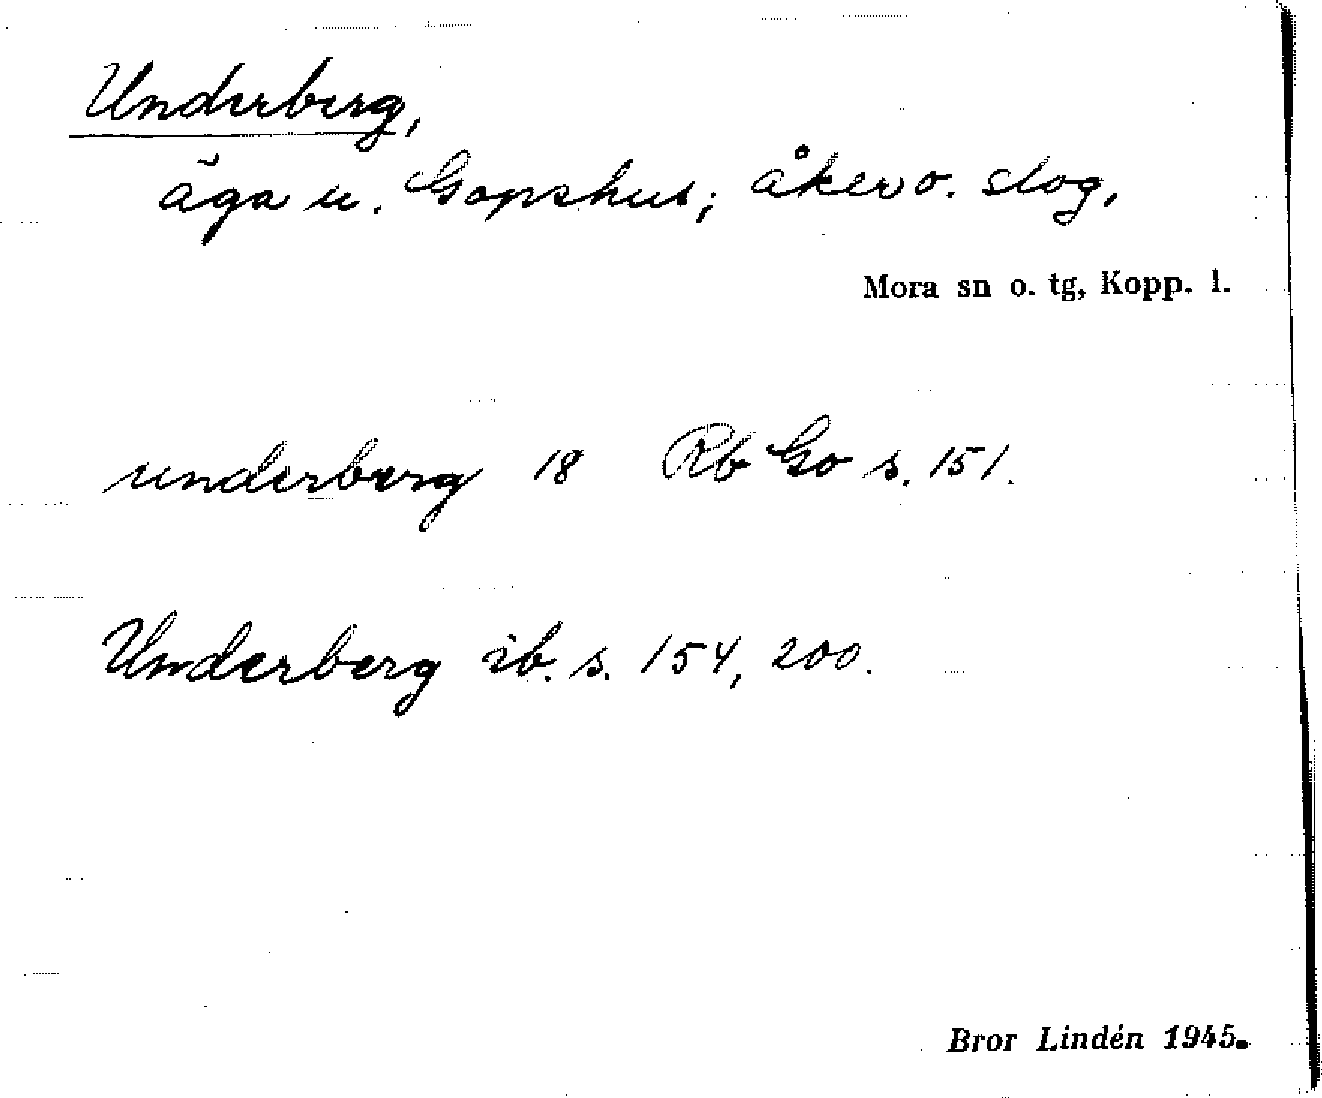 Underberg,
äga u. Gopshus; åker o. slog,
Mora sn o. tg, Kopp. l.
underberg 18 Rb Go s. 151.
Underberg ib. s. 154, 200.
Bror Lindén 1945.